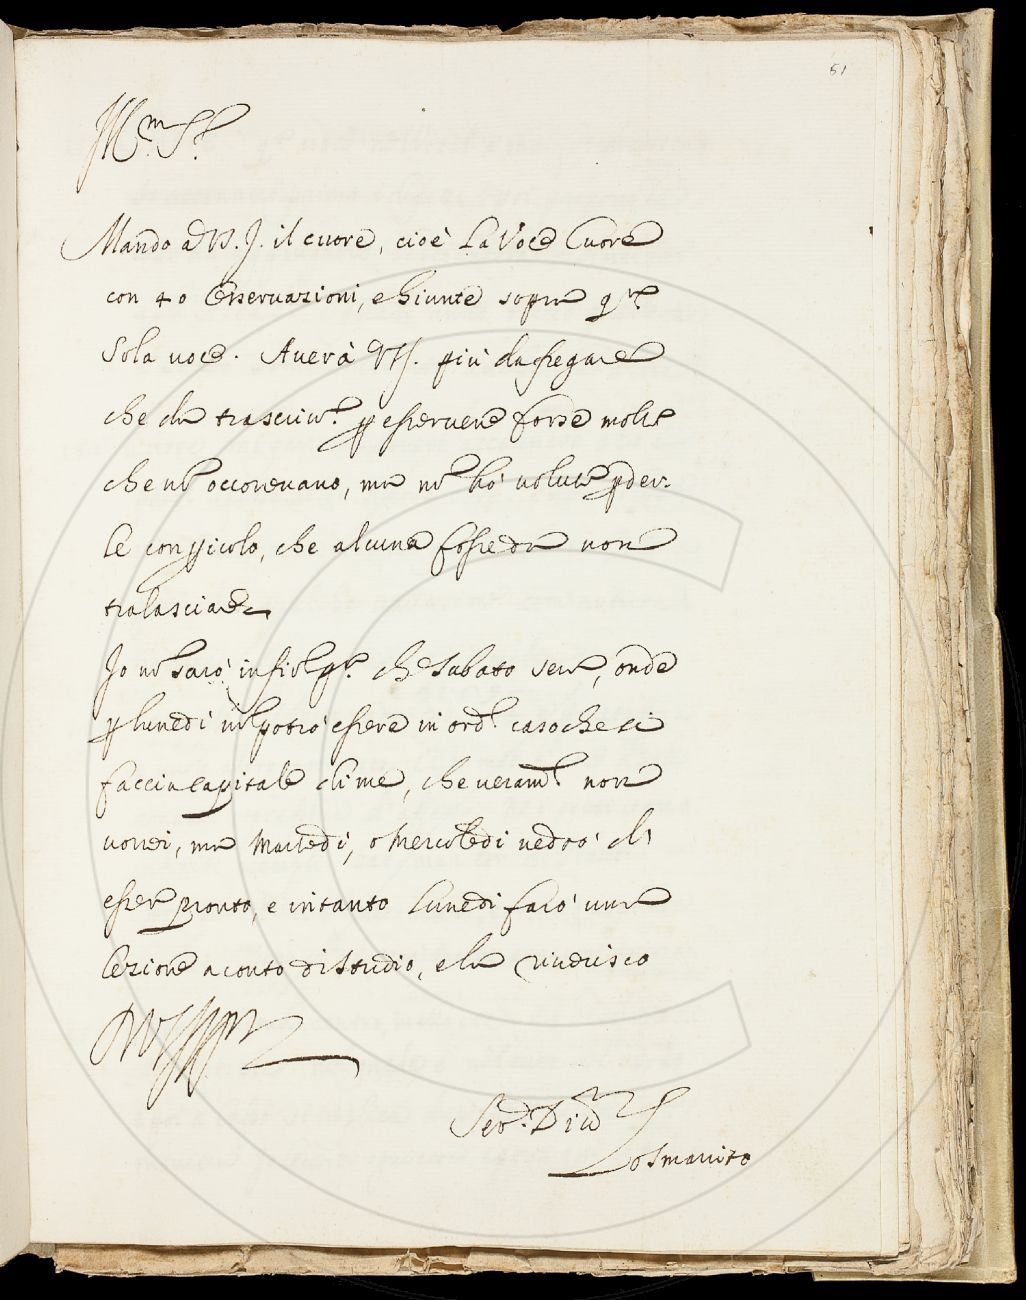 51
Ill.m S.r
Mando a V.S. il cuore, cioè La Voce Cuore
con 40 Osservazioni, e Giunte sopra q.sta
Sola voce. Averà VS. più da fregare
che da trascriv.e p esservene forse molte
che nō occorrevano, ma nō hò volute pder=
le con picolo, che alcuna fosse da non
tralasciare
Io nō sarò in fir.ze che Sabato sera, onde
p lunedì nō potrò essere in ord.e caso che si
faccia capitale di me, che veram.te non
vorrei, ma Martedì, o Mercoledì vedrò di
esser pronto, e intanto lunedì farò una
lezione a conto di Studio, e la riverisco
Di VS Ill.ma
Ser.e D.
osmarito